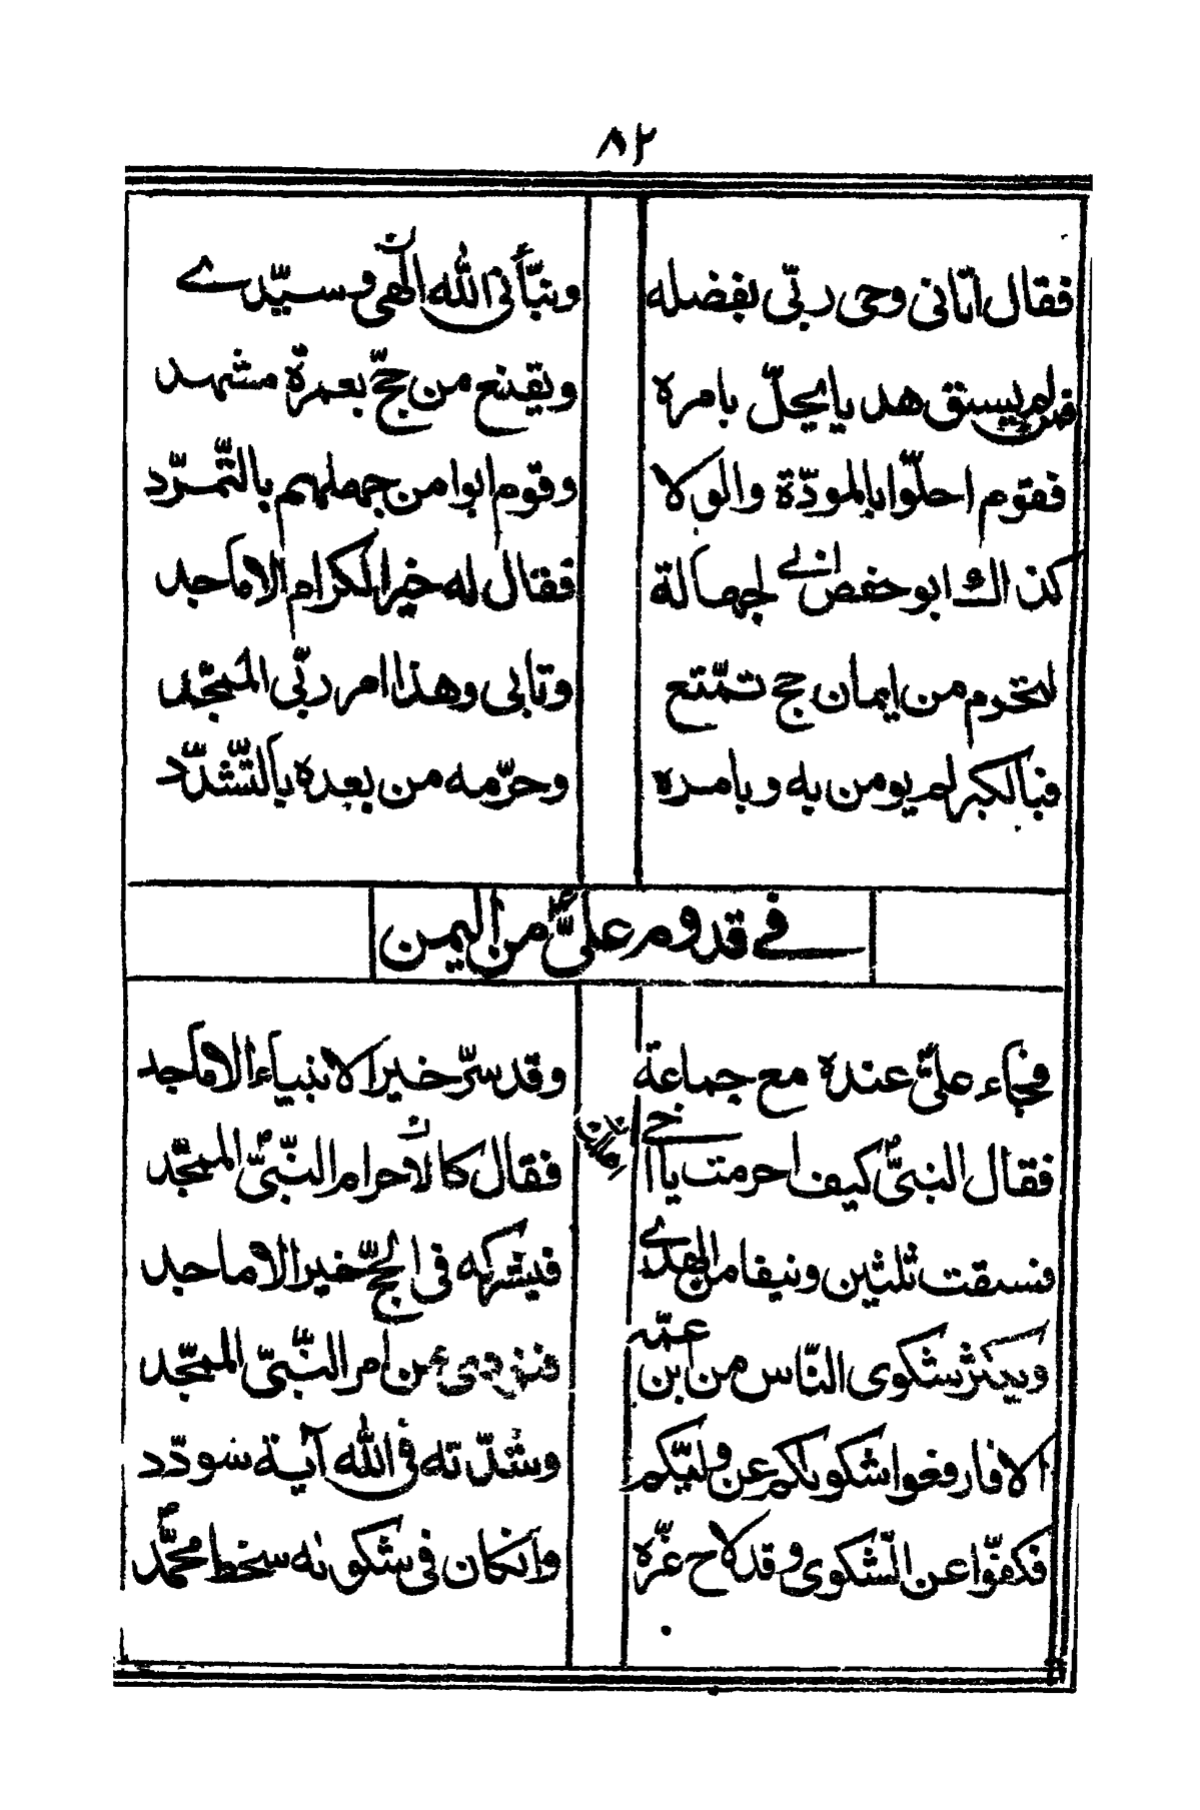 ٨٢
فقال اتانى وحى ربّى بفضله ونبّأنى الله الهى وسيّدے
فمن لم يسبق هديا يحلّ بامره ويقنع من حجّ بعمرة مشهد
فقوم احلّوا بالمودّة والولا وقوم ابوا من جهلهم بالتّمرّد
كذالك ابو حفص ابے لجهالة فقال له خير المكرام الاماجد
لتحرم من ايمان حج تمتع وتابى وهذا امر ربّى الممجّد
فبالكبر لم يومن به وبامره وحرّمه من بعده بالتّشدّد
فے قدوم علىّ من اليمن
فجاء علىّ عنده مع جماعة وقد سرّ خير الانبياء الاماجد
فقال النبىّ كيف احرمت يا اخے فقال كالاحرام النّبىّ الممجّد
فسقت ثلثين ونيفا من الهدے فيشركه فى الحجّ خير الاماجد
ويكثر شكوى النّاس من ابن عمّه عن امر النّبىّ الممجّد
الا فارفعوا شكويكم عن وليّكم وشدّته فى الله آية سودد
فكفّوا عن الشّكوى وقد لاح غرّه وان كان فى شكونه سخط محمّد